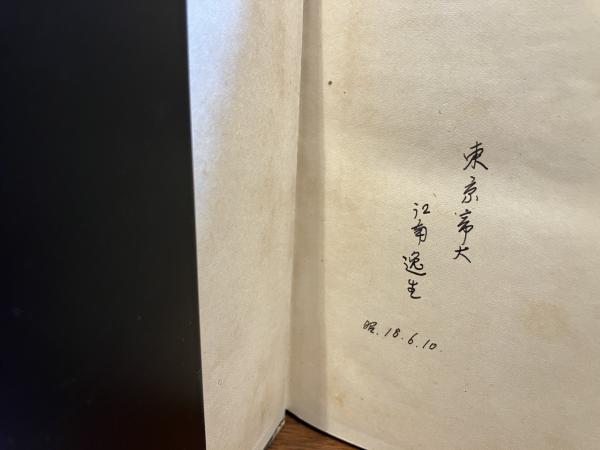 東京帝大
江南逸生
昭.18.6.10.